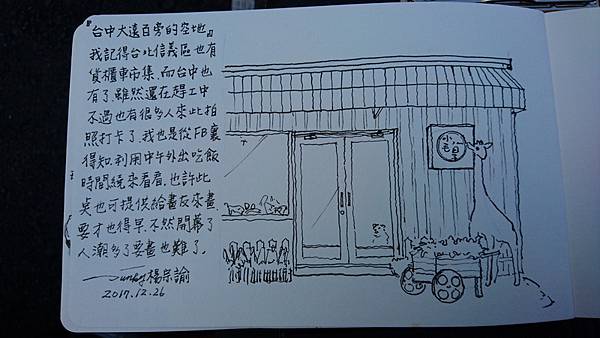 台中大遠百旁的空地。
我記得台北信義區也有
貨櫃車市集、而台中也
有了、雖然還在趕工中
不過也有很多人來此拍
照打卡了、我也是從FB裏
得知、利用中午外出吃飯
時間繞來看看、也許此
景也可提供給畫友來畫
要才也得早、不然開幕了
人潮多了要畫也難了。
楊宗諭
2017.12.26